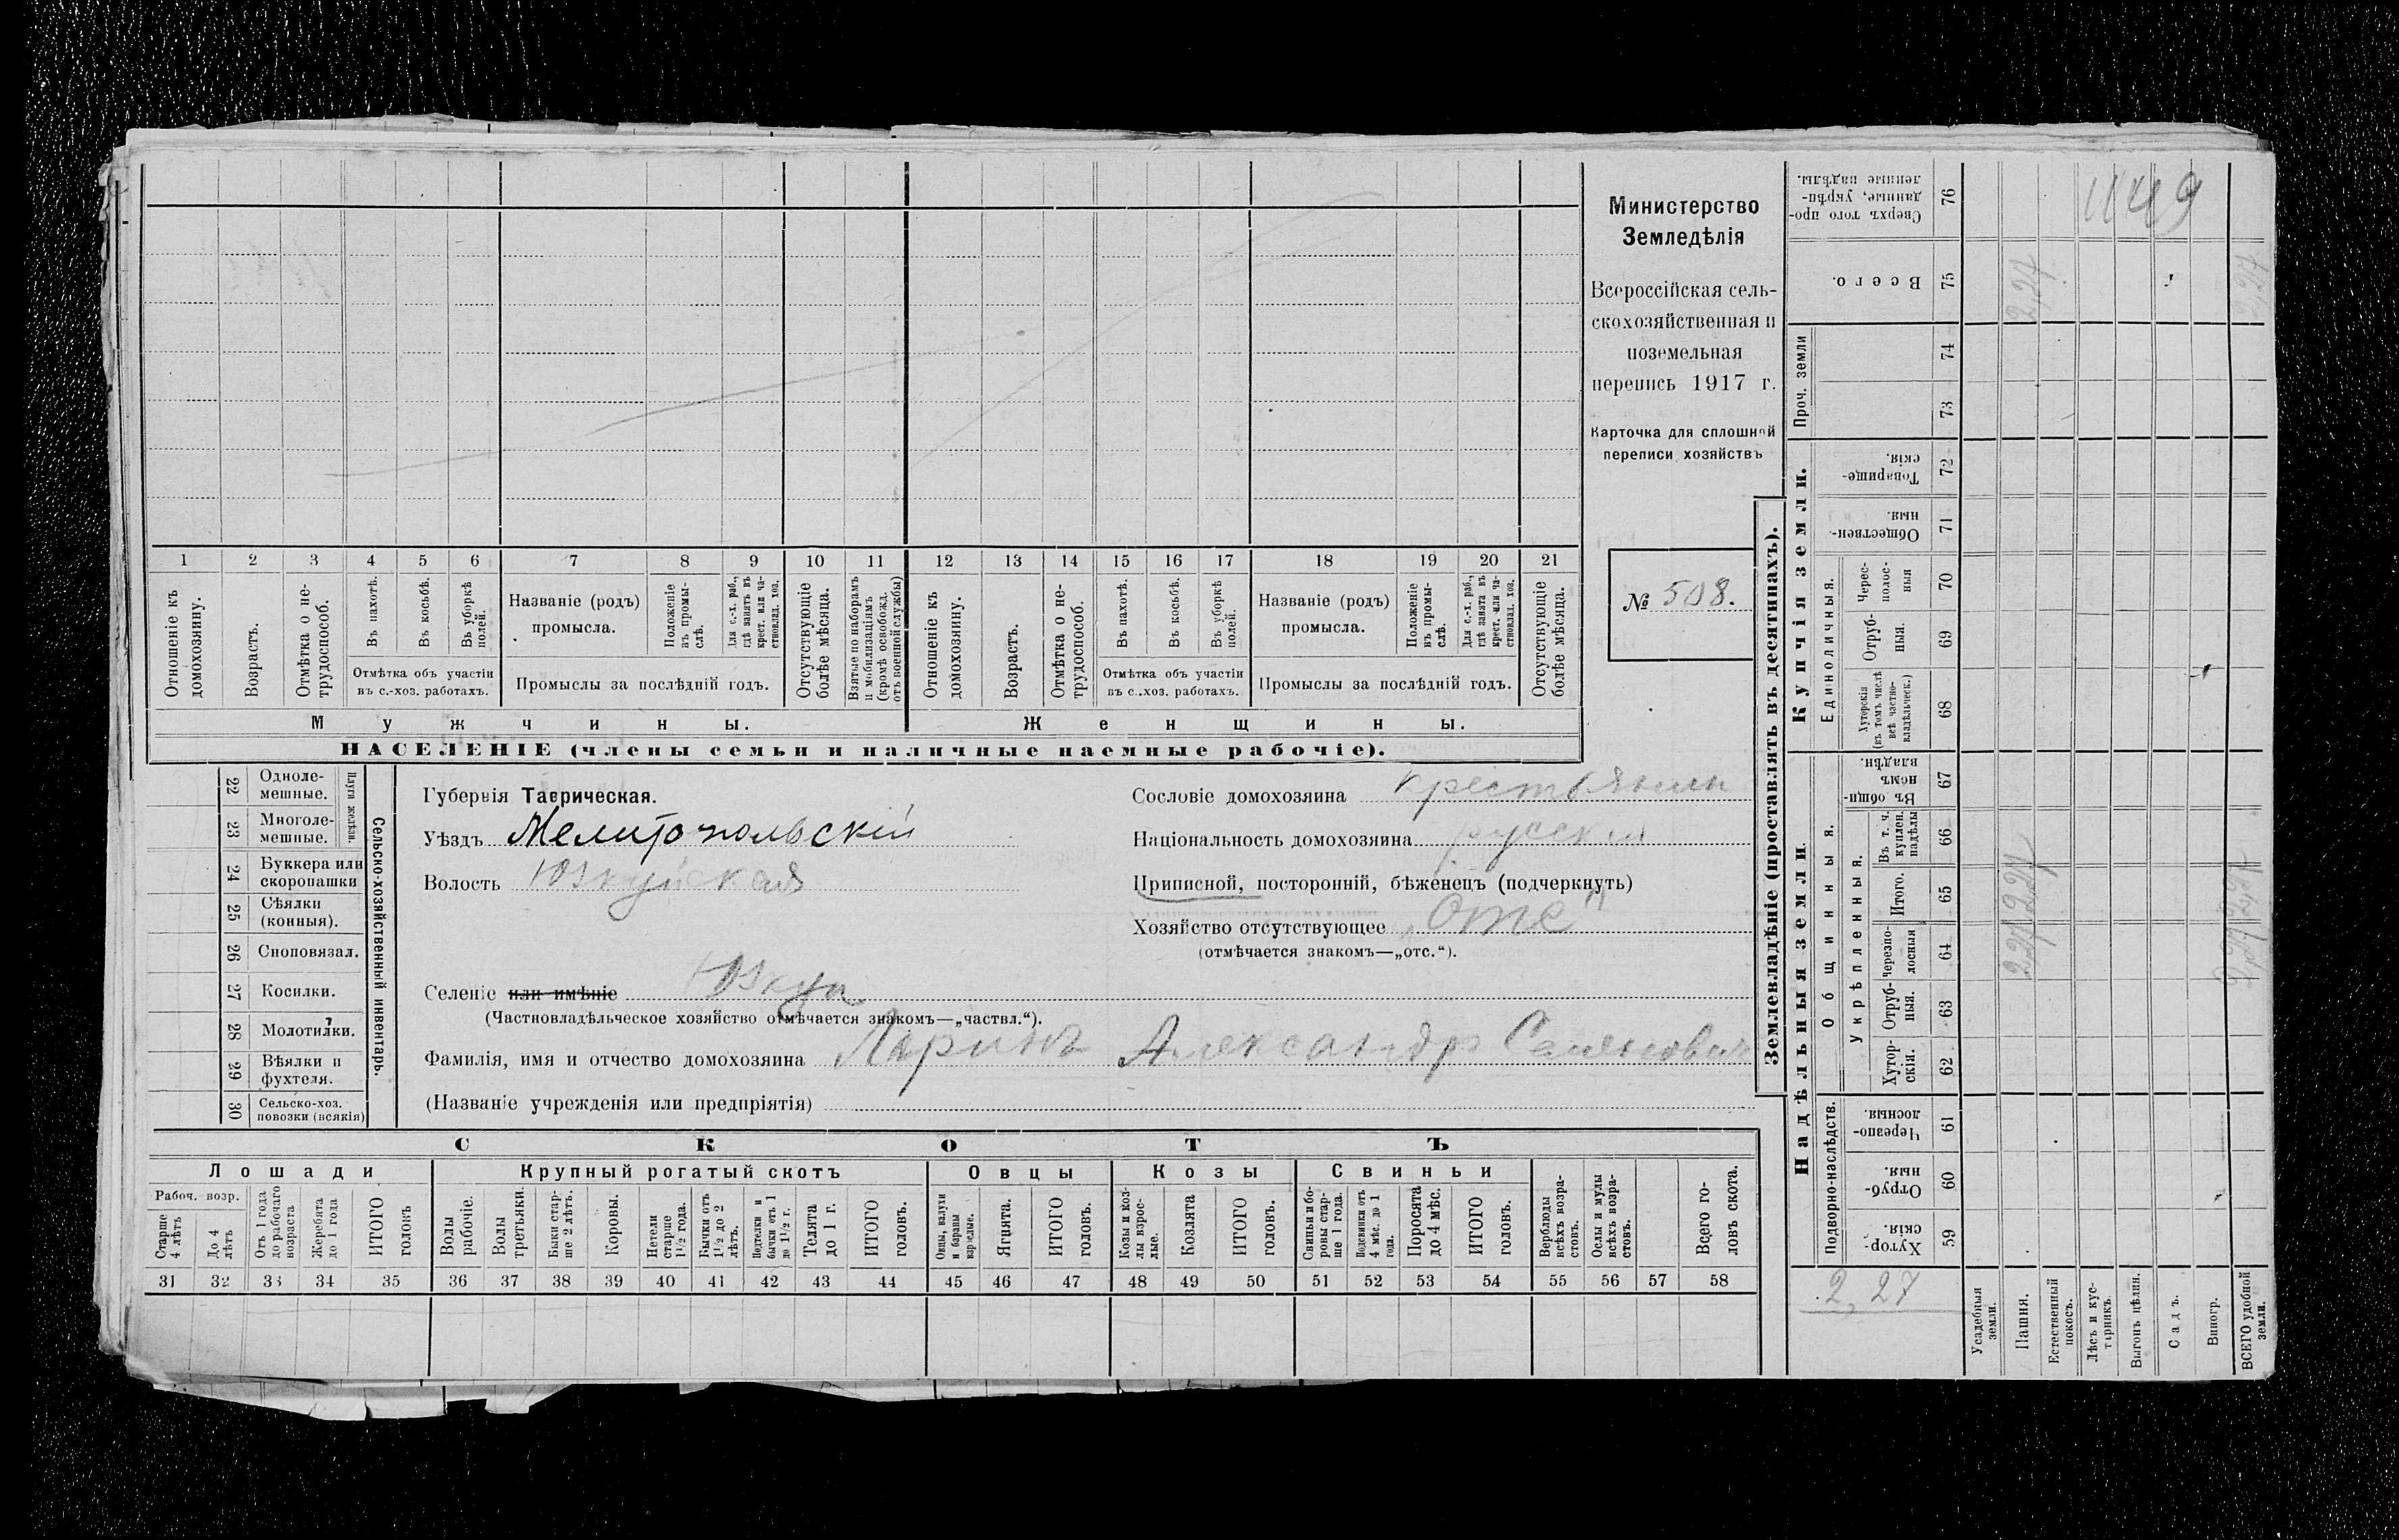 1 2 3 4 5 6 7 8 9 10 11 12 13 14 15 16 17 18 19 20 21
Отношеніе къ домохозяину.
Возрастъ.
Отмѣтка о нетрудоспособ.
Въ пахотѣ.
Въ косьбѣ.
Въ уборкѣ полей.
Отмѣтка объ участіи
въ с.-хоз. работахъ.
Названіе (родъ)
промысла.
Положеніе въ промыслѣ.
Для с.-х. раб., гдѣ занятъ въ крест. или частновлад. хоз.
Промыслы за послѣдній годъ.
Отсутствующіе болѣе мѣсяца.
Взятые по наборамъ и мобилизаціямъ (кромѣ освобожд. отъ военной службы)
Отношеніе къ домохозяину.
Возрастъ.
Отмѣтка о нетрудоспособ.
Въ пахотѣ.
Въ косьбѣ.
Въ уборкѣ полей.
Отмѣтка объ участіи
въ с.-хоз. работахъ.
Названіе (родъ)
промысла.
Положеніе въ промыслѣ.
Для с.-х. раб., гдѣ занята въ крест. или частновлад. хоз.
Промыслы за послѣдній годъ.
Отсутствующіе болѣе мѣсяца.
Мужчины.
Женщины.
НАСЕЛЕНІЕ (члены семьи и наличные наемные рабочіе).
Министерство
Земледѣлія
Всероссійская сель-
скохозяйственная и
поземельная
перепись 1917 г.
Карточка для сплошной
переписи хозяйствъ
№ 508.
Сельско-хозяйственный инвентарь.
Плуги желѣзн.
22 Одноле-
мешные.
23 Многоле-
мешные.
24 Буккера или
скоропашки
25 Сѣялки
(конныя).
26 Сноповязал.
27 Косилки.
28 Молотилки.
29 Вѣялки и
фухтеля.
30 Сельско-хоз.
повозки (всякія)
Губернія Таврическая.
Уѣздъ Мелитопольскій
Волость Юзкуйская
Селеніе или имѣніе Юзкуи
(Частновладѣльческое хозяйство отмѣчается знакомъ—„частвл.“).
Фамилія, имя и отчество домохозяина Ларинъ Александръ Семеновичъ
(Названіе учрежденія или предпріятія)
Сословіе домохозяина крестьянинъ
Національность домохозяина русскій
Приписной, посторонній, бѣженецъ (подчеркнуть)
Хозяйство отсутствующее „Отс“
(отмѣчается знакомъ—„отс.“).
СКОТЪ
Лошади
Крупный рогатый скотъ
Овцы
Козы
Свиньи
Рабоч. возр.
Старше 4 лѣтъ
До 4 лѣтъ
Отъ 1 года до рабочаго возраста
Жеребята до 1 года
ИТОГО головъ
Волы рабочіе.
Волы третьяки.
Быки старше 2 лѣтъ.
Коровы.
Нетели старше 1½ года.
Бычки отъ 1½ до 2 лѣтъ.
Подтелки и бычки отъ 1 до 1½ г.
Телята до 1 г.
ИТОГО головъ.
Овцы, валухи и бараны взрослые.
Ягнята.
ИТОГО головъ.
Козы и козлы взрослые.
Козлята
ИТОГО головъ.
Свиньи и боровы старше 1 года.
Подсвинки отъ 4 мѣс. до 1 года.
Поросята до 4 мѣс.
ИТОГО головъ.
Верблюды всѣхъ возрастовъ.
Ослы и мулы всѣхъ возрастовъ.
Всего головъ скота.
31 32 33 34 35 36 37 38 39 40 41 42 43 44 45 46 47 48 49 50 51 52 53 54 55 56 57 58
Землевладѣніе (проставлять въ десятинахъ).
Надѣльныя земли
Купчія земли.
Проч. земли
Подворно-наслѣдств.
Общинныя.
Укрѣпленныя.
Единоличныя.
Хуторскія. 59
Отрубныя. 60
Черезполосныя. 61
Хуторскія. 62
Отрубныя. 63
Черезполосныя 64
Итого. 65
Въ т. ч. куплен. надѣлы 66
Въ общинномъ владѣн. 67
Хуторскія (въ томъ числѣ всѣ частновладѣльческ.) 68
Отрубныя. 69
Чересполосныя 70
Общественныя. 71
Товарищескія. 72
73
74
Всего. 75
Сверхъ того проданные, укрѣпленные надѣлы. 76
2,27
Усадебныя земли.
Пашня.
2,27 2,27 2,27
Естественный покосъ.
Лѣсъ и кустарникъ.
Выгонъ цѣлин.
Садъ.
Виногр.
ВСЕГО удобной земли.
1149